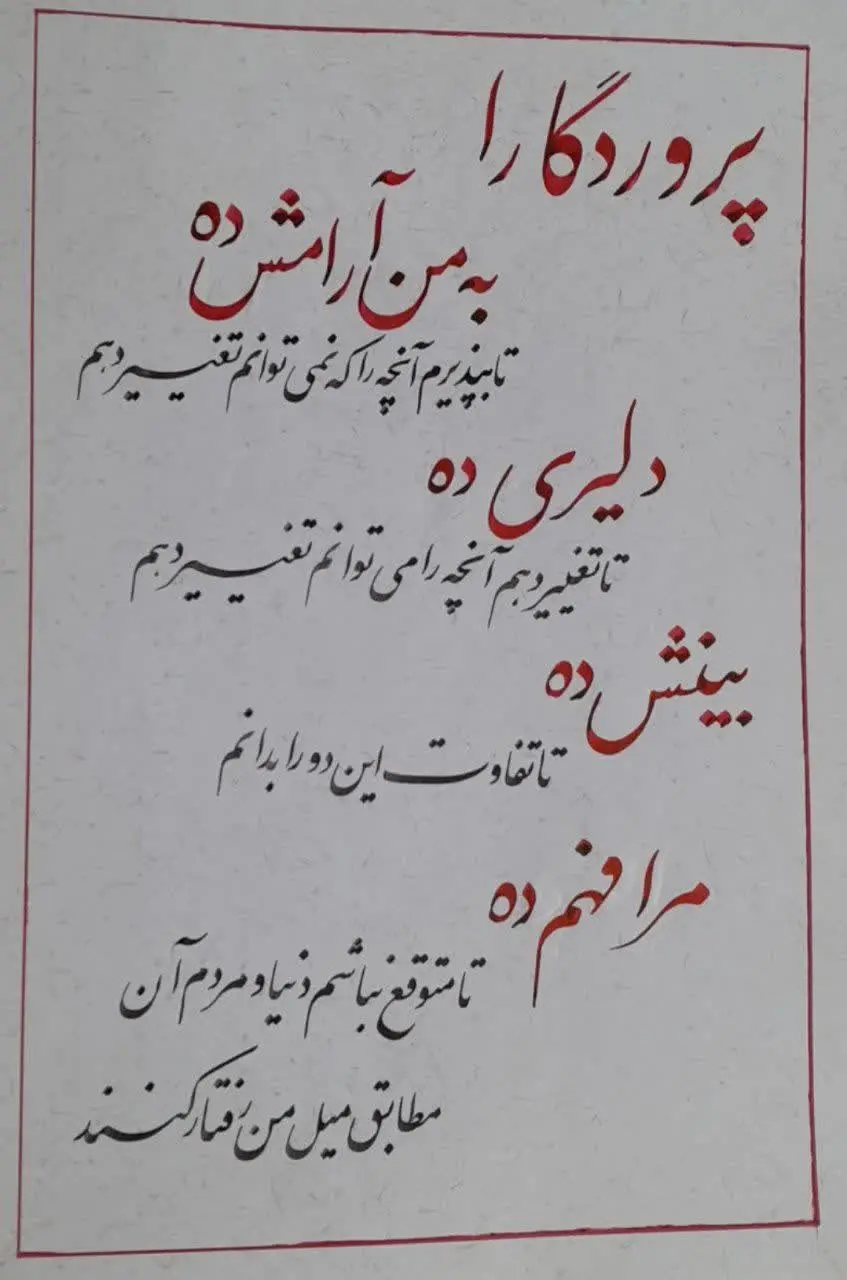 پروردگارا
به من آرامش ده
تا بپذیرم آنچه را که نمی توانم تغییر دهم
دلیری ده
تا تغییر دهم آنچه را می توانم تغییر دهم
بینش ده
تا تفاوت این دو را بدانم
مرا فهم ده
تا متوقع نباشم دنیا و مردم آن
مطابق میل من رفتار کنند